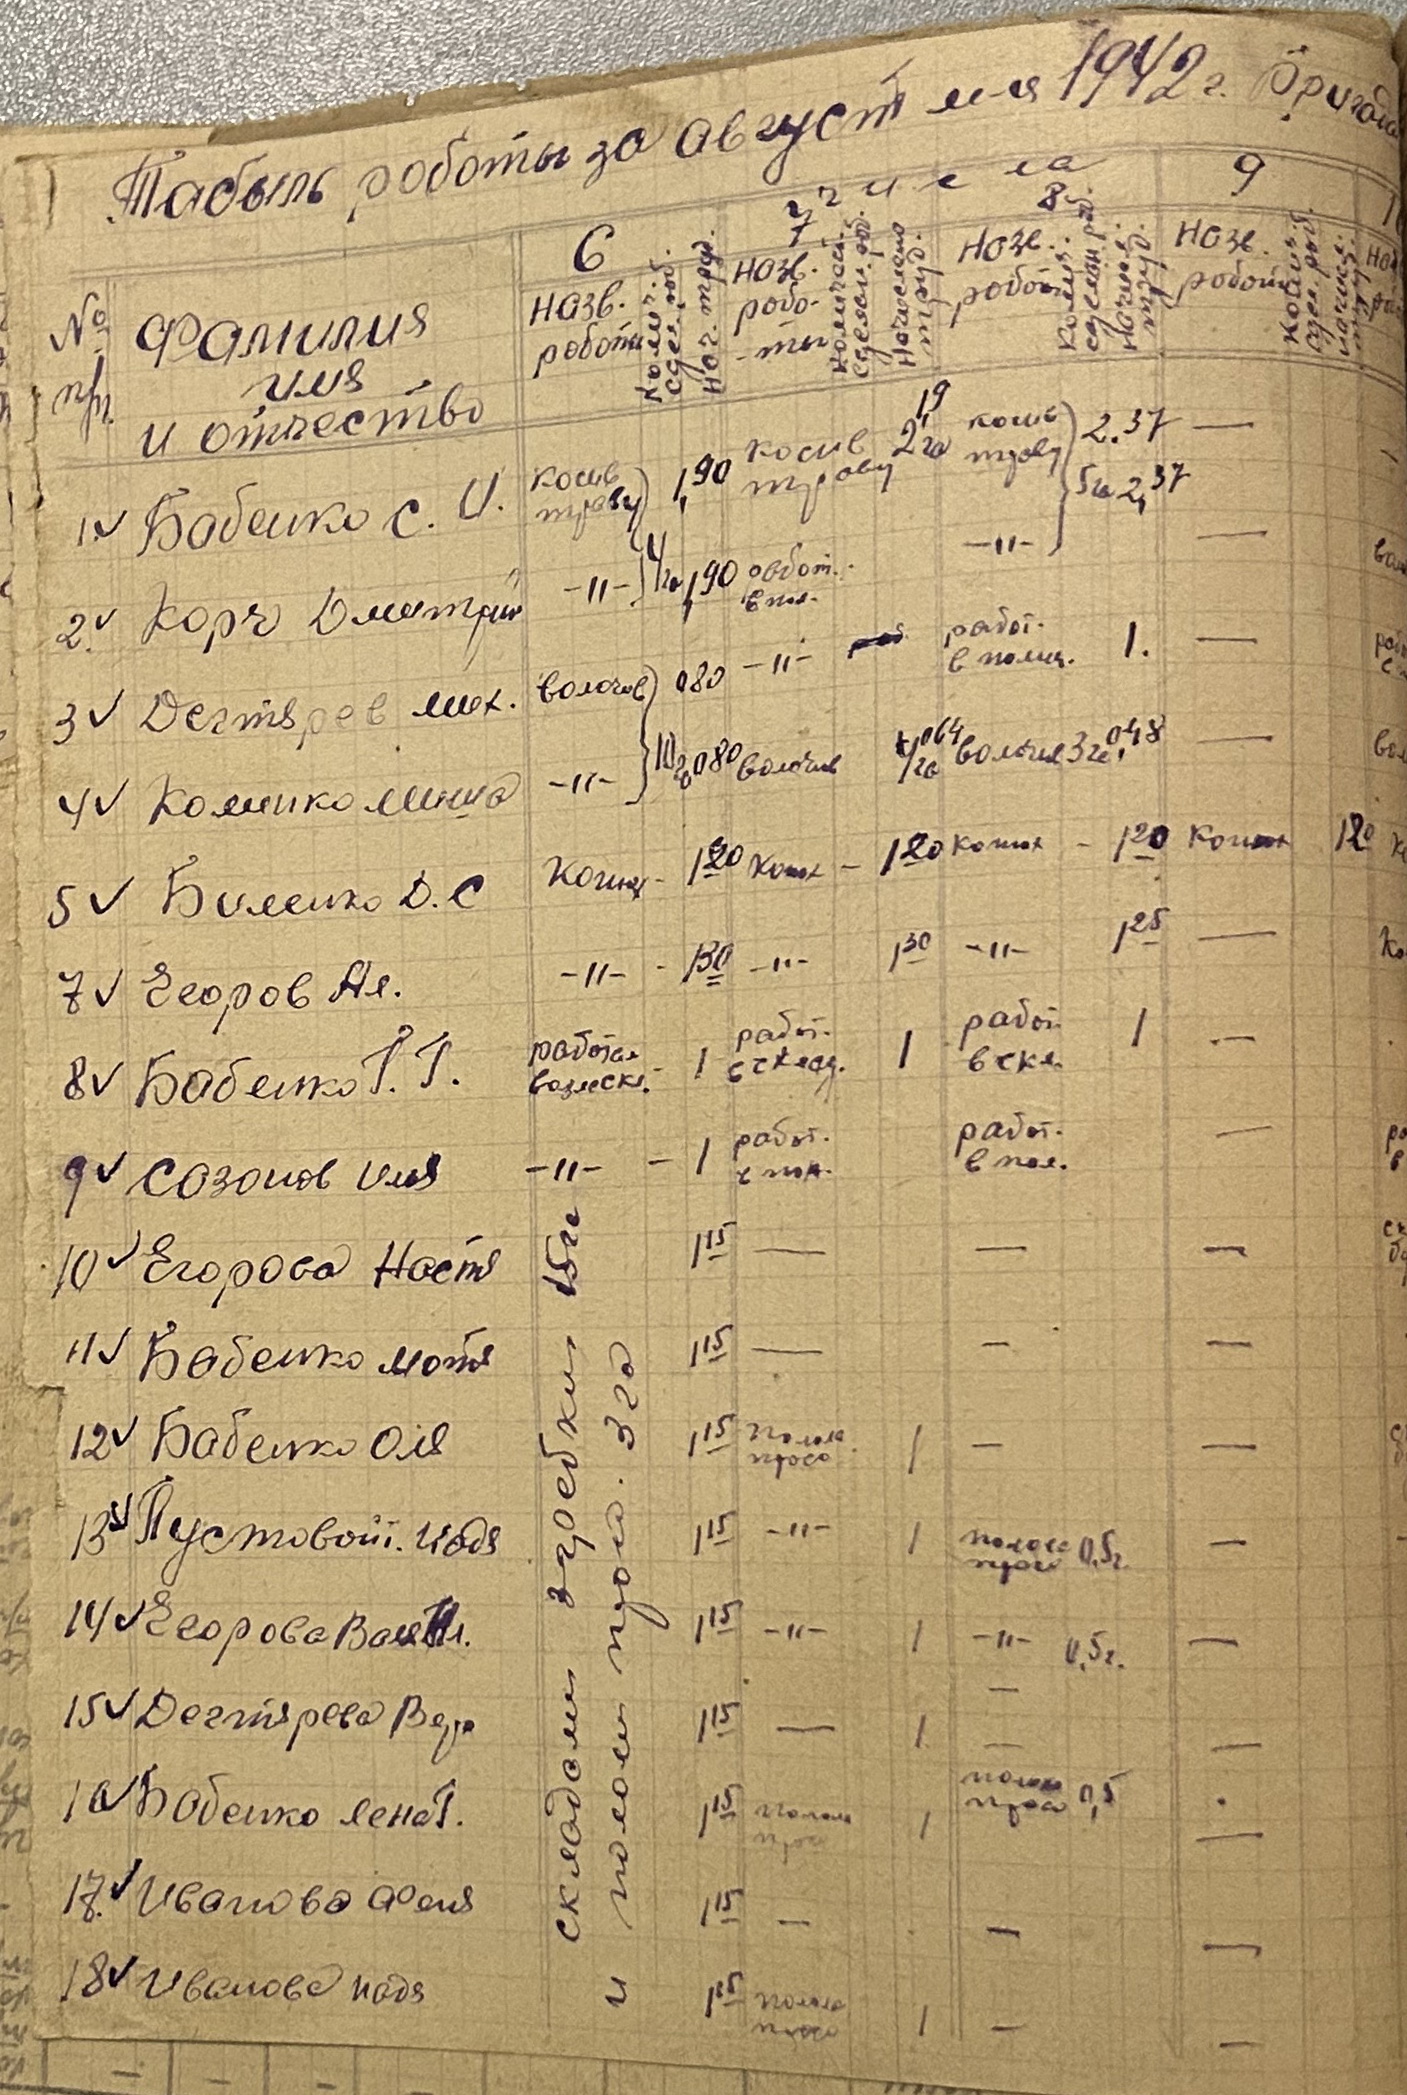 Табыль роботы за август м-ц 1942 г. Бригада
числа
6 7 8 9
№ п/п. Фамилия имя и отчество
Назв. роботы Колич. сдел. роб. Нач. труд. Назв. робо-ты Количеств. сделан. роб. Начислено труд. Назв. роботы Колич. сделан. роб. Начисл. труд. Назв. роботы Колич. сдел. роб. начисл. труд.
1. Бабенко С. И. косив траву 1,90 косив траву 2га 1,19 косив траву 2.37 —
2. Корч Дмитрий -"- 4га 1,90 работ. в пол. -"- 5га 2,37 —
3 Дегтярев Мих. волочив 080 -"- работ. в полиц. 1. —
4 Коменко Миша -"- 10га 080 волочив 4га 064 волочив 3га 048 —
5 Биленко Д.С Конюх - 120 Конюх - 120 Конюх - 120 Конюх 120
7 Егоров Ал. -"- - 130 -"- 130 -"- 125 —
8 Бабенко Г. Г. работал возле скл. - 1 работ. в склад. 1 работ в скл. 1 —
9 Созонов Иля -"- - 1 работ. в пол. работ. в пол. —
10 Егорова Настя 115 — — —
11 Бабенко Мотя 115 — — —
12 Бабенко Оля 115 полола просо 1 — —
13 Пустовойт. Надя 115 -"- 1 полола просо 0,5г. —
14 Егорова Вал. 115 -"- 1 -"- 0,5г. —
15 Дегтярева Вер 115 — 1 — —
16 Бабенко Лена Г. 115 полола просо 1 полола просо 0,5 —
17. Иванова Феня 115 — — —
18 Иванова Надя 115 полола просо 1 — —
складали згребки 15га
и пололи просо. 3га